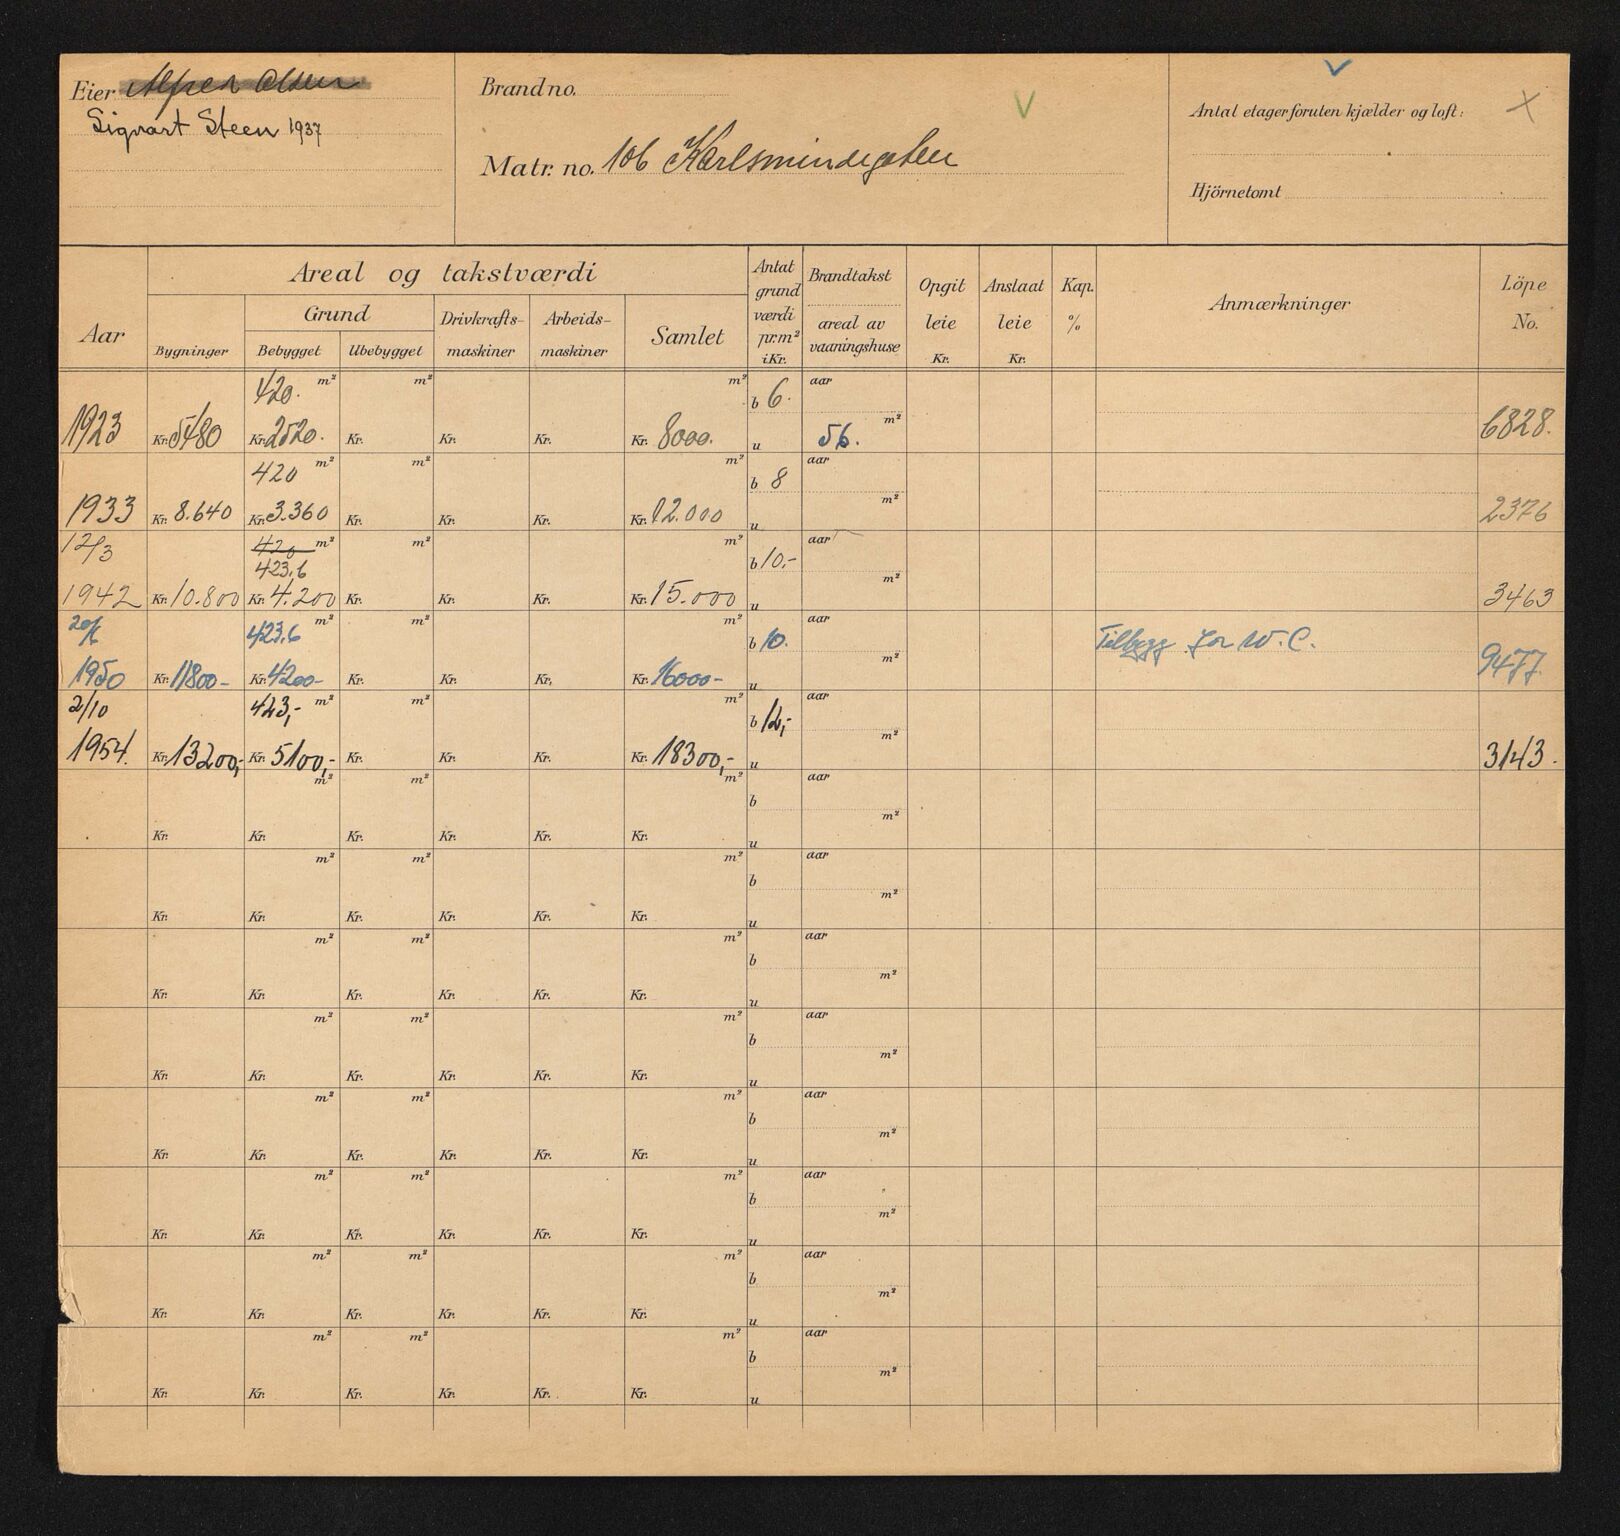 Eier Alfred Olsen
Sigvart Steen 1937
Brandno.
Matr. no. 106 Karlsmindegaten
Antal etager foruten kjælder og loft:
Hjörnetomt
Aar
Areal og takstværdi
Bygninger
Grund
Bebygget
Ubebygget
Drivkrafts-
maskiner
Arbeids-
maskiner
Samlet
Antat
grund
værdi
pr.m²
i Kr.
Brandtakst
areal av
vaaningshuse
Opgit
leie
Kr.
Anslaat
leie
Kr.
Kap.
%
Anmærkninger
Löpe
No.
420. m² m² m² b 6. aar
1923 Kr. 5480 Kr. 2520. Kr. Kr. Kr. Kr. 8000. u 56. m² 6828.
420 m² m² m² b 8 aar
1933 Kr. 8.640 Kr. 3.360 Kr. Kr. Kr. Kr. 12.000 u m² 2376
12/3 420 m² m² m² b 10,- aar
423,6
1942 Kr. 10.800 Kr. 4.200 Kr. Kr. Kr. Kr. 15.000 u m² 3463
20/6 423,6 m² m² m² b 10. aar Tilbygg for W.C.
1950 Kr. 11800- Kr. 4200- Kr. Kr. Kr. Kr. 16000- u m² 9477.
2/10 423,- m² m² m² b 12,- aar
1954. Kr. 13200,- Kr. 5100,- Kr. Kr. Kr. Kr. 18300,- u m² 3143.
m² m² m² b aar
Kr. Kr. Kr. Kr. Kr. Kr. u m²
m² m² m² b aar
Kr. Kr. Kr. Kr. Kr. Kr. u m²
m² m² m² b aar
Kr. Kr. Kr. Kr. Kr. Kr. u m²
m² m² m² b aar
Kr. Kr. Kr. Kr. Kr. Kr. u m²
m² m² m² b aar
Kr. Kr. Kr. Kr. Kr. Kr. u m²
m² m² m² b aar
Kr. Kr. Kr. Kr. Kr. Kr. u m²
m² m² m² b aar
Kr. Kr. Kr. Kr. Kr. Kr. u m²
m² m² m² b aar
Kr. Kr. Kr. Kr. Kr. Kr. u m²